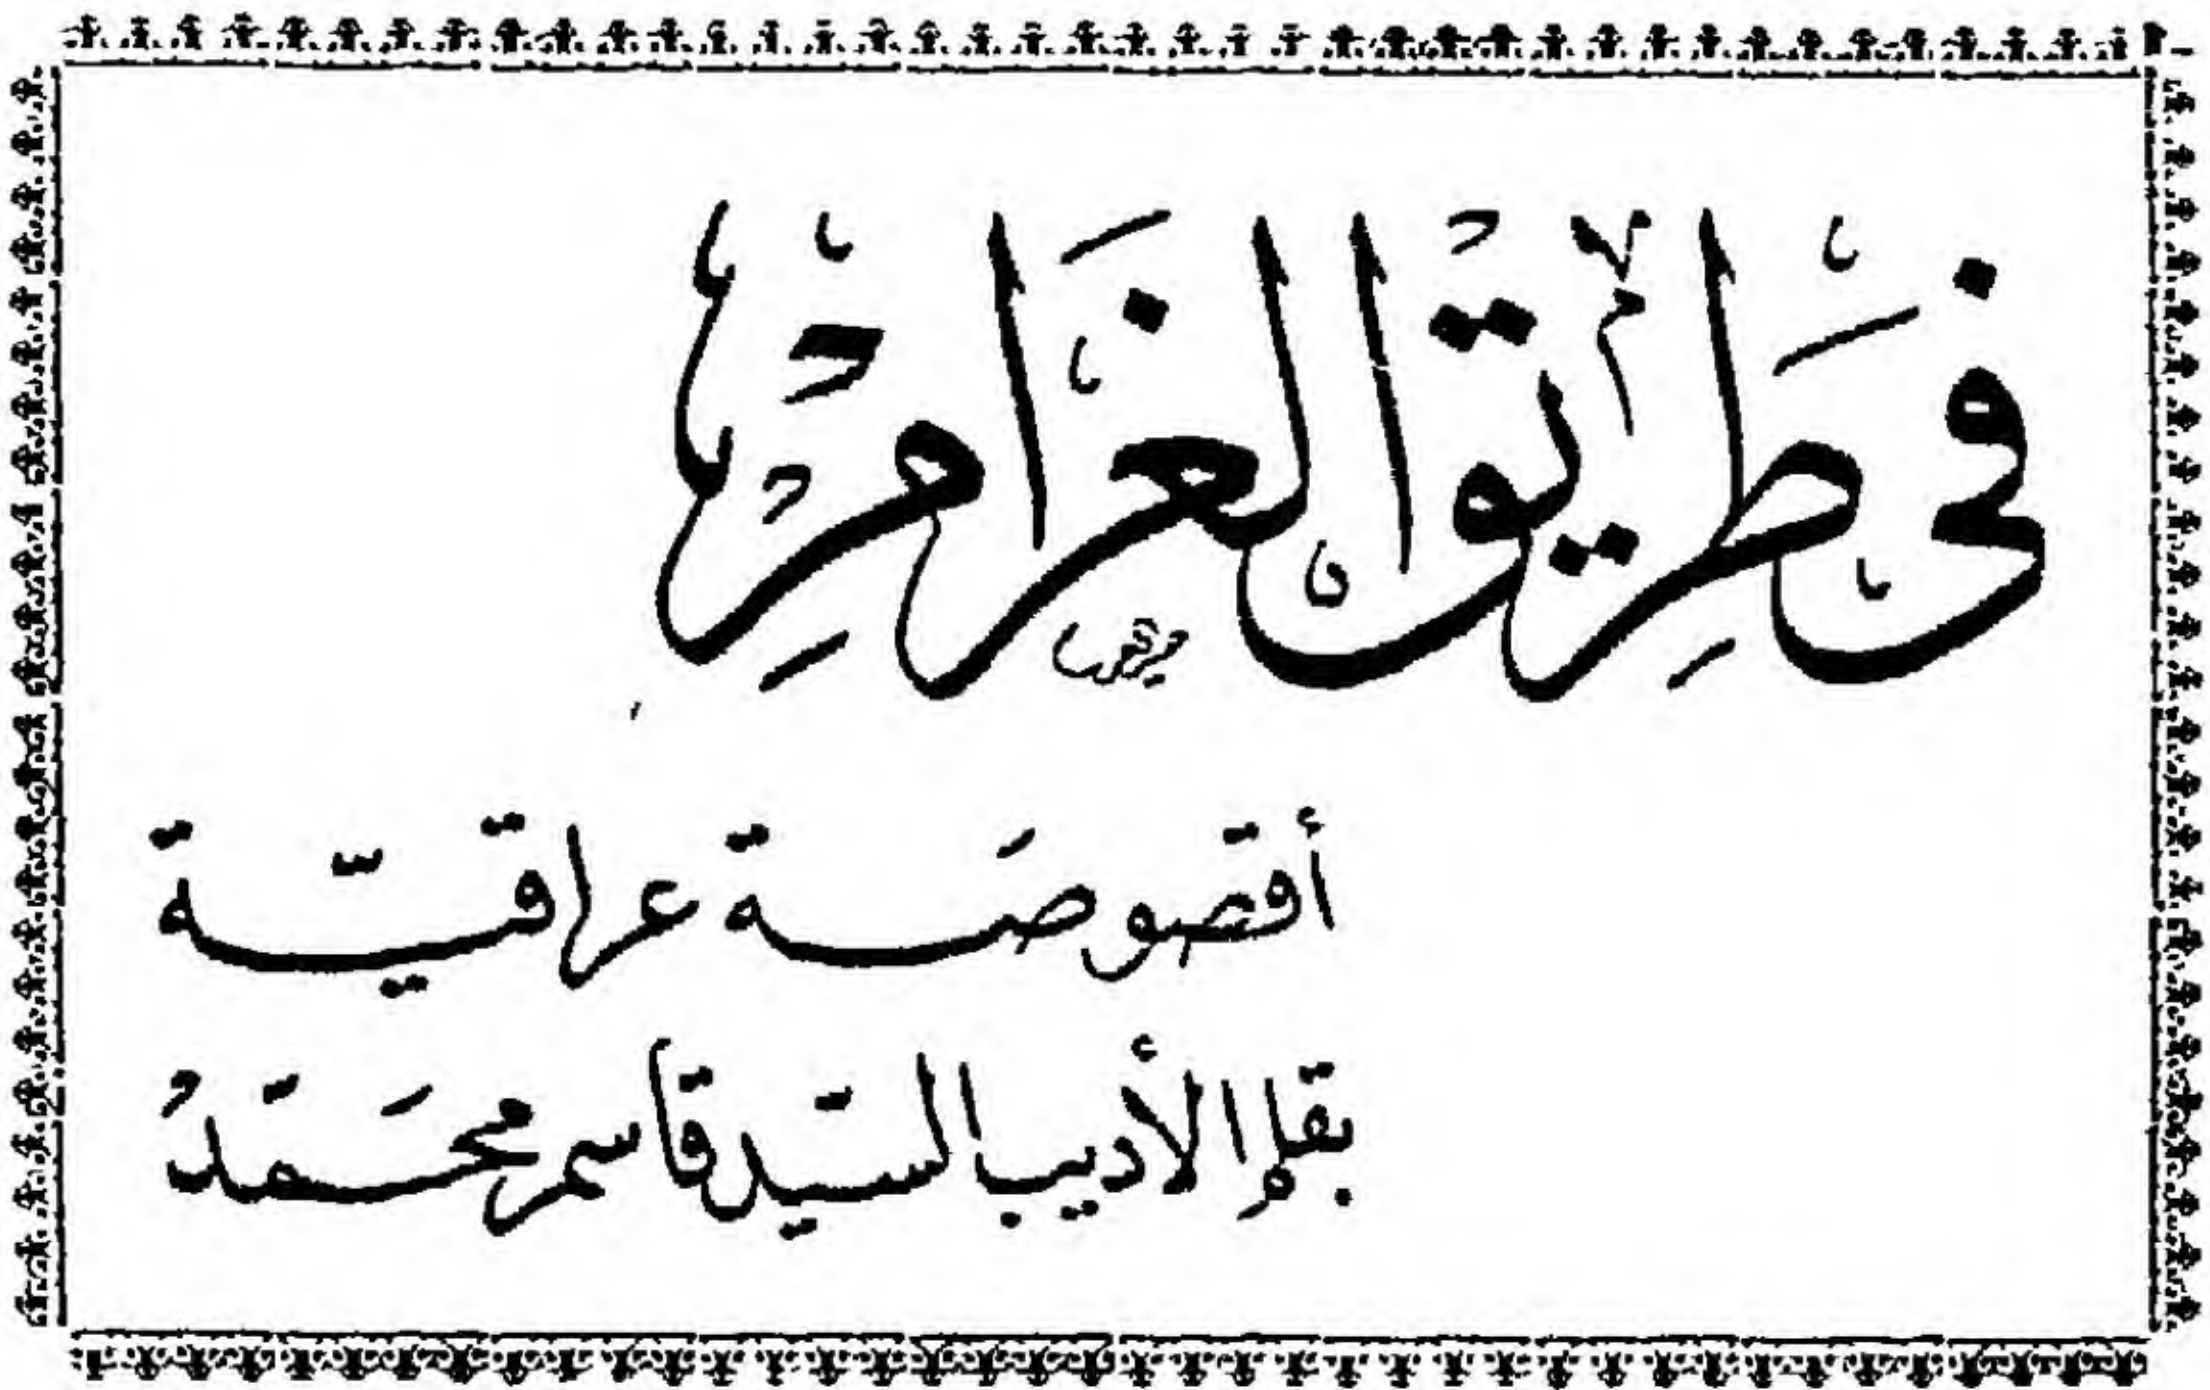 في طَرِيق الغَرامِ
أقصوصَة عراقيّة
بقلم الأديب السّيد قاسم محَمّدُ